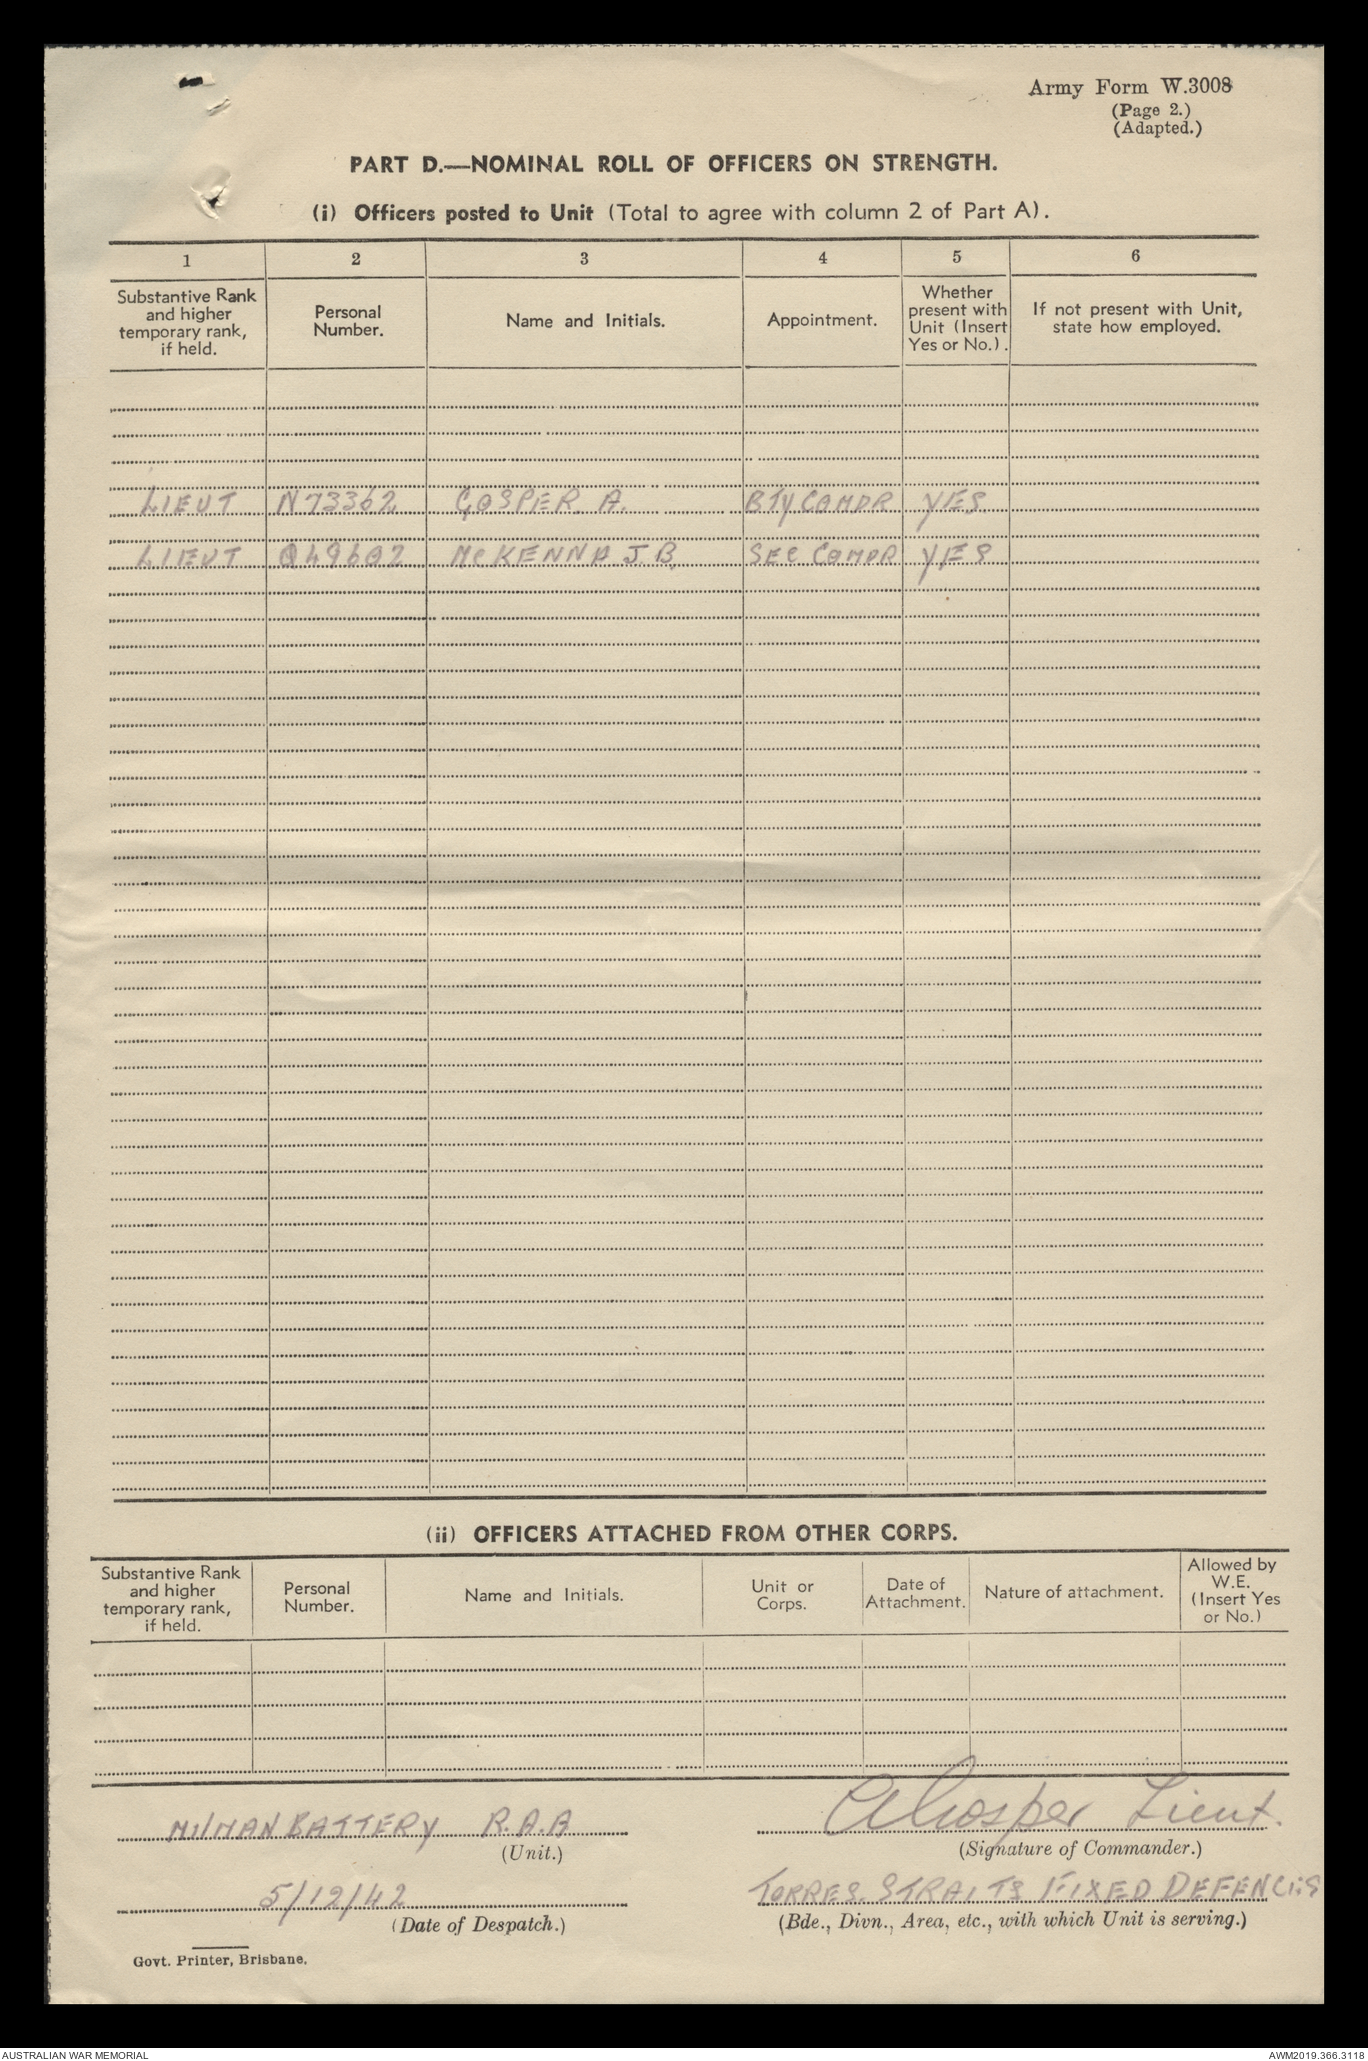 Army Form W.3008
(Page 2.)
(Adapted.)
PART D.—NOMINAL ROLL OF OFFICERS ON STRENGTH.
(i) Officers posted to Unit (Total to agree with column 2 of Part A).
1 2 3 4 5 6
Substantive Rank and higher temporary rank, if held.
Personal Number.
Name and Initials.
Appointment.
Whether present with Unit (Insert Yes or No.).
If not present with Unit, state how employed.
LIEUT N73362 GOSPER. A. BTY COMDR YES
LIEUT Q49602 McKENNA J.B. SEC COMDR YES
(ii) OFFICERS ATTACHED FROM OTHER CORPS.
Substantive Rank and higher temporary rank, if held.
Personal Number.
Name and Initials.
Unit or Corps.
Date of Attachment.
Nature of attachment.
Allowed by W.E. (Insert Yes or No.)
MILMAN BATTERY R.A.A
(Unit.)
A Gosper Lieut.
(Signature of Commander.)
5/12/42
(Date of Despatch.)
TORRES STRAITS FIXED DEFENCES
(Bde., Divn., Area, etc., with which Unit is serving.)
Govt. Printer, Brisbane.
AUSTRALIAN WAR MEMORIAL
AWM2019.366.3118